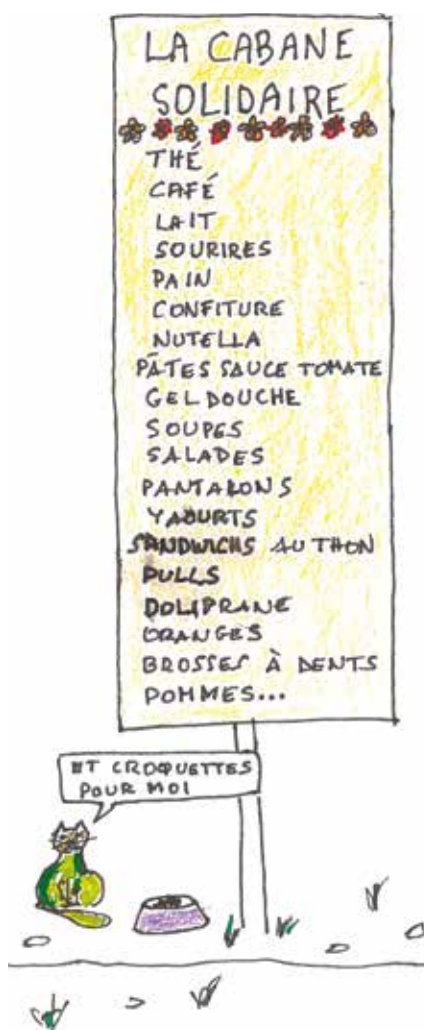 LA CABANE
SOLIDAIRE
THÉ
CAFÉ
LAIT
SOURIRES
PAIN
CONFITURE
NUTELLA
PÂTES SAUCE TOMATE
GEL DOUCHE
SOUPES
SALADES
PANTALONS
YAOURTS
SANDWICHS AU THON
PULLS
DOLIPRANE
ORANGES
BROSSES À DENTS
POMMES...
ET CROQUETTES
POUR MOI